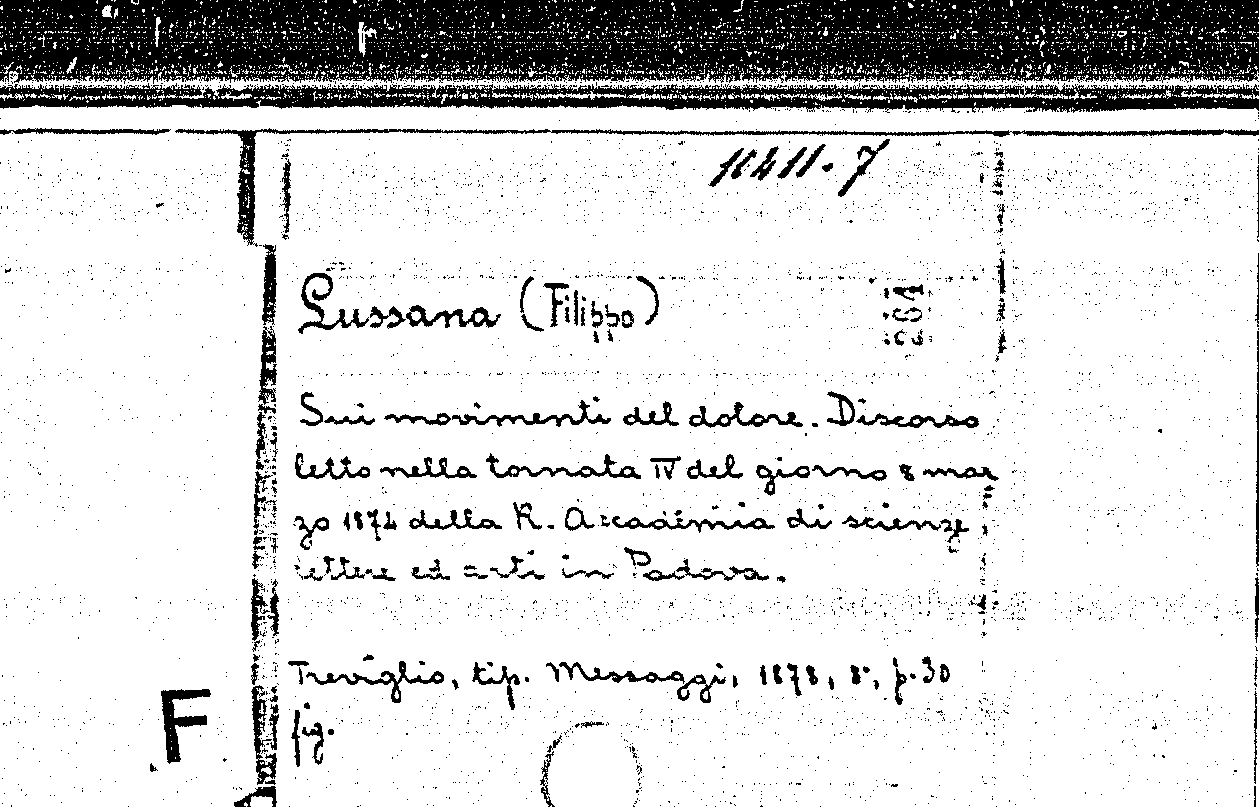 11411.7
Lussana (Filippo)
Sui movimenti del dolore. Discorso
letto nella tornata IV del giorno 8 mar
zo 1874 della R. Accademia di scienze,
lettere ed arti in Padova.
Treviglio, tip. Messaggi, 1878, 8°, p. 30
fig.
F